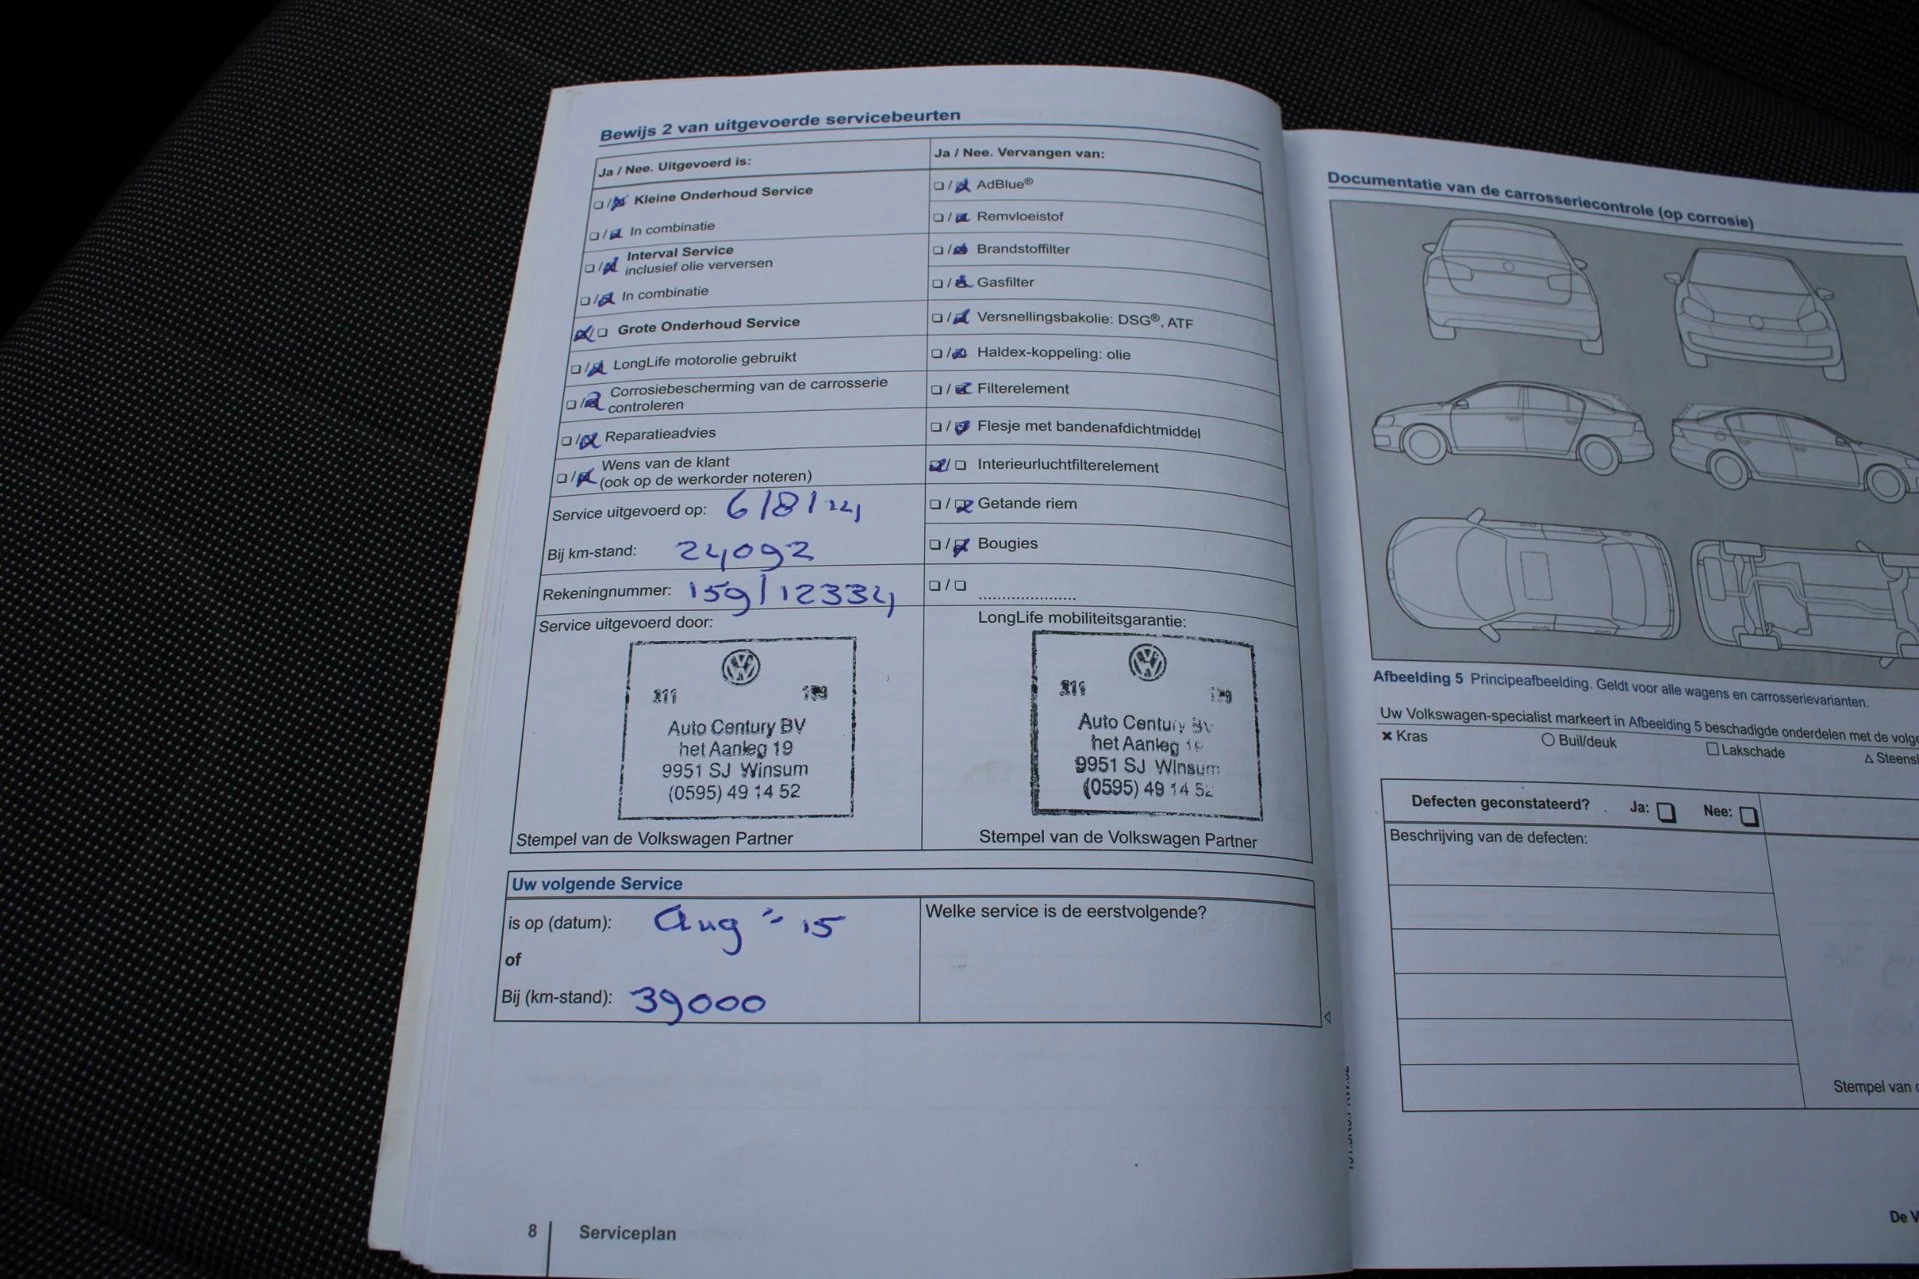 Bewijs 2 van uitgevoerde servicebeurten
Ja / Nee. Uitgevoerd is:
Kleine Onderhoud Service
In combinatie
Interval Service
inclusief olie verversen
In combinatie
Grote Onderhoud Service
LongLife motorolie gebruikt
Corrosiebescherming van de carrosserie
controleren
Reparatieadvies
Wens van de klant
(ook op de werkorder noteren)
Service uitgevoerd op: 6/8/14
Bij km-stand: 24092
Rekeningnummer: 159/12334
Service uitgevoerd door:
211 159
Auto Century BV
het Aanleg 19
9951 SJ Winsum
(0595) 49 14 52
Stempel van de Volkswagen Partner
Ja / Nee. Vervangen van:
AdBlue®
Remvloeistof
Brandstoffilter
Gasfilter
Versnellingsbakolie: DSG®, ATF
Haldex-koppeling: olie
Filterelement
Flesje met bandenafdichtmiddel
Interieurluchtfilterelement
Getande riem
Bougies
LongLife mobiliteitsgarantie:
211
Auto Century BV
het Aanleg
9951 SJ Winsum
(0595) 49 14 52
Stempel van de Volkswagen Partner
Uw volgende Service
is op (datum): Aug - 15
of
Bij (km-stand): 39000
Welke service is de eerstvolgende?
8 Serviceplan
Documentatie van de carrosseriecontrole (op corrosie)
Afbeelding 5 Principeafbeelding. Geldt voor alle wagens en carrosserievarianten.
Uw Volkswagen-specialist markeert in Afbeelding 5 beschadigde onderdelen met de volge
Kras Buil/deuk Lakschade Steens
Defecten geconstateerd? Ja: Nee:
Beschrijving van de defecten:
Stempel van
De V